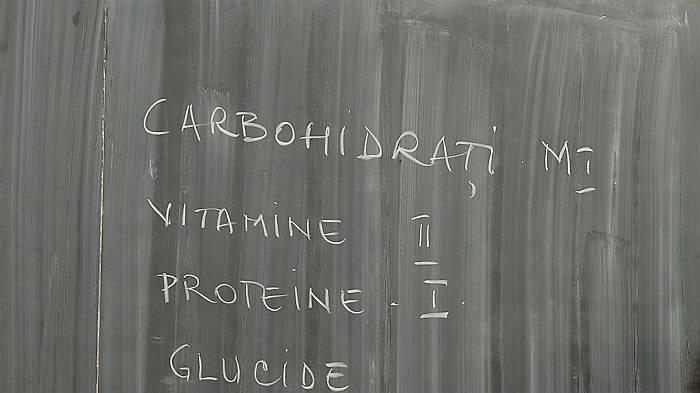 CARBOHIDRAȚI. MI
VITAMINE II
PROTEINE. I.
GLUCIDE